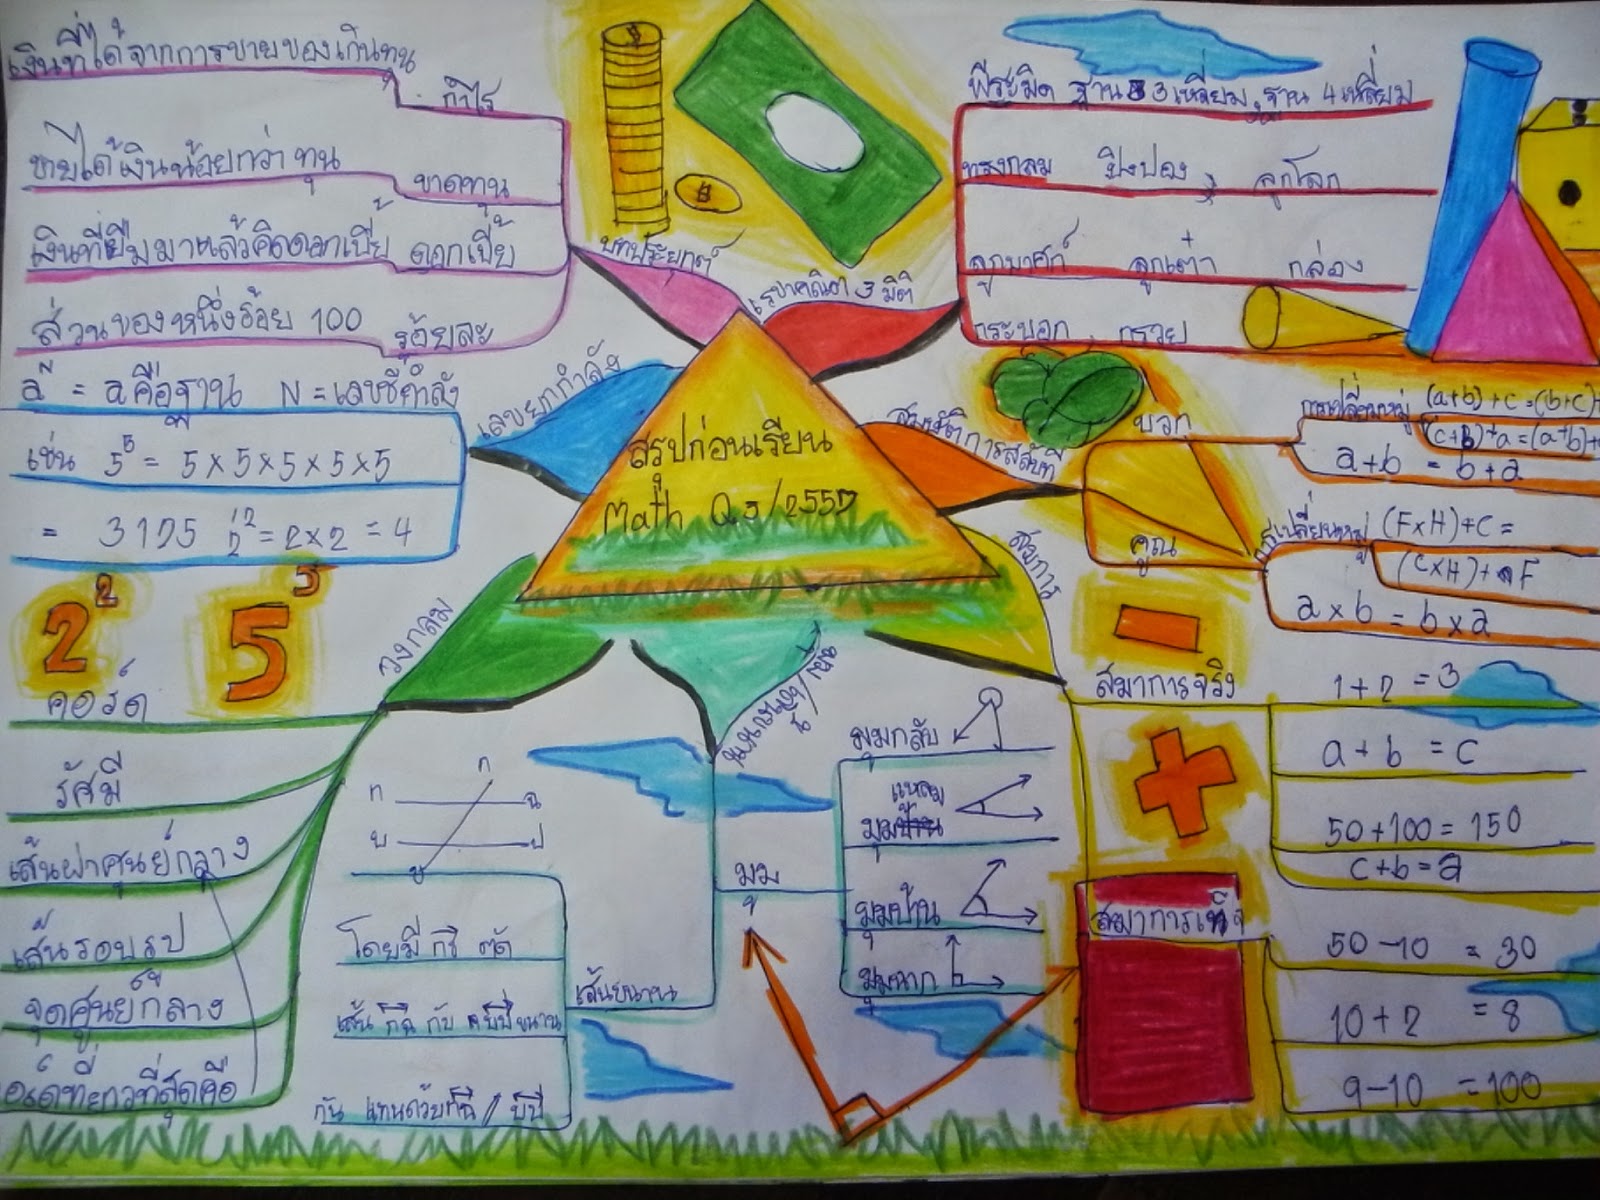 สรุปก่อนเรียน
Math Q.3/2557
บทประยุกต์
เงินที่ได้จากการขายของเกินทุน
กำไร
ขายได้เงินน้อยกว่าทุน
ขาดทุน
เงินที่ยืมมาแล้วคิดดอกเบี้ย
ดอกเบี้ย
ส่วนของหนึ่งร้อย 100
ร้อยละ
เลขยกกำลัง
aᴺ = a คือฐาน N = เลขชี้กำลัง
เช่น 5⁵ = 5×5×5×5×5
= 3125 2² = 2×2 = 4
2² 5⁵
วงกลม
คอร์ด
รัศมี
เส้นผ่าศูนย์กลาง
เส้นรอบรูป
จุดศูนย์กลาง
คอร์ดที่ยาวที่สุดคือ
เรขาคณิต 3 มิติ
พีระมิด ฐาน 3 เหลี่ยม, ฐาน 4 เหลี่ยม
ทรงกลม ปิงปอง, ลูกโลก
ลูกบาศก์ ลูกเต๋า กล่อง
กระบอก กรวย
สมบัติการสลับที่
บวก
การเปลี่ยนหมู่ (a+b)+c=(b+c)+
(c+b)+a=(a+b)+
a+b = b+a
คูณ
การเปลี่ยนหมู่ (F×H)+C =
(C×H)+F
a×b = b×a
สมการ
สมาการจริง
1+2 = 3
a+b = c
50+100 = 150
c+b = a
สมาการเท็จ
50-10 = 30
10+2 = 8
9-10 = 100
มุม
มุมกลับ
แหลม
มุม
มุมป้าน
มุมฉาก
เส้นขนาน
ก
โดยมี กริ ตัด
กัน แทนด้วย